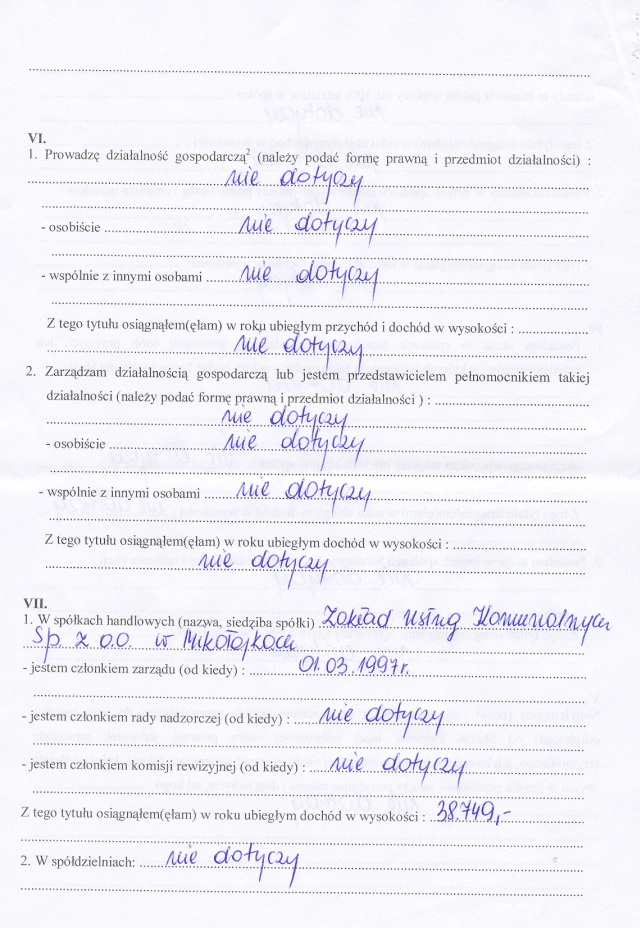 VI.
1. Prowadzę działalność gospodarczą² (należy podać formę prawną i przedmiot działalności) :
nie dotyczy
- osobiście nie dotyczy
- wspólnie z innymi osobami nie dotyczy
Z tego tytułu osiągnąłem(ęłam) w roku ubiegłym przychód i dochód w wysokości :
nie dotyczy
2. Zarządzam działalnością gospodarczą lub jestem przedstawicielem pełnomocnikiem takiej
działalności (należy podać formę prawną i przedmiot działalności ) :
nie dotyczy
- osobiście nie dotyczy
- wspólnie z innymi osobami nie dotyczy
Z tego tytułu osiągnąłem(ęłam) w roku ubiegłym dochód w wysokości :
nie dotyczy
VII.
1. W spółkach handlowych (nazwa, siedziba spółki) Zakład Usług Komunalnych
Sp. z o.o. w Mikołajkach
- jestem członkiem zarządu (od kiedy) : 01.03.1997r.
- jestem członkiem rady nadzorczej (od kiedy) : nie dotyczy
- jestem członkiem komisji rewizyjnej (od kiedy) : nie dotyczy
Z tego tytułu osiągnąłem(ęłam) w roku ubiegłym dochód w wysokości : 38.749,-
2. W spółdzielniach: nie dotyczy